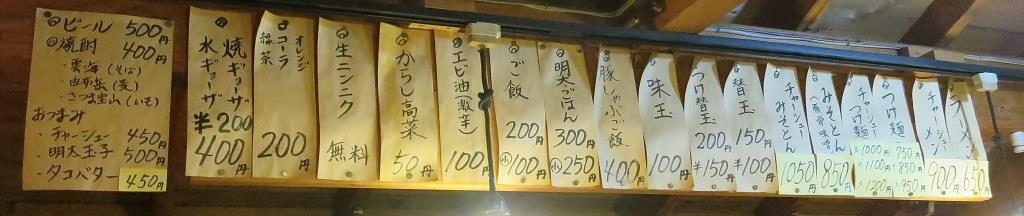 ビール 500円
焼酎 400円
・雲海(そば)
(麦)
・さつま宝山(いも)
おつまみ
・チャーシュー 450円
・明太玉子 500円
・タコバター 450円
焼ギョーザ
水ギョーザ
半200
400円
オレンジ
コーラ
緑茶
200円
生ニンニク
無料
からし高菜
50円
エビ油(激辛)
100円
ご飯
200円
小100円
明太ごはん
300円
小250円
豚しゃぶご飯
400円
味玉
100円
つけ替玉
200円
半150円
替玉
150円
半100円
チャーシュー
みそとん
1050円
みそとん
(豚骨味噌)
850円
チャーシュー
つけ麺
小1000円
中1100円
大1200円
つけ麺
小750円
中850円
大950円
チャーメン
900円
ラーメン
650円